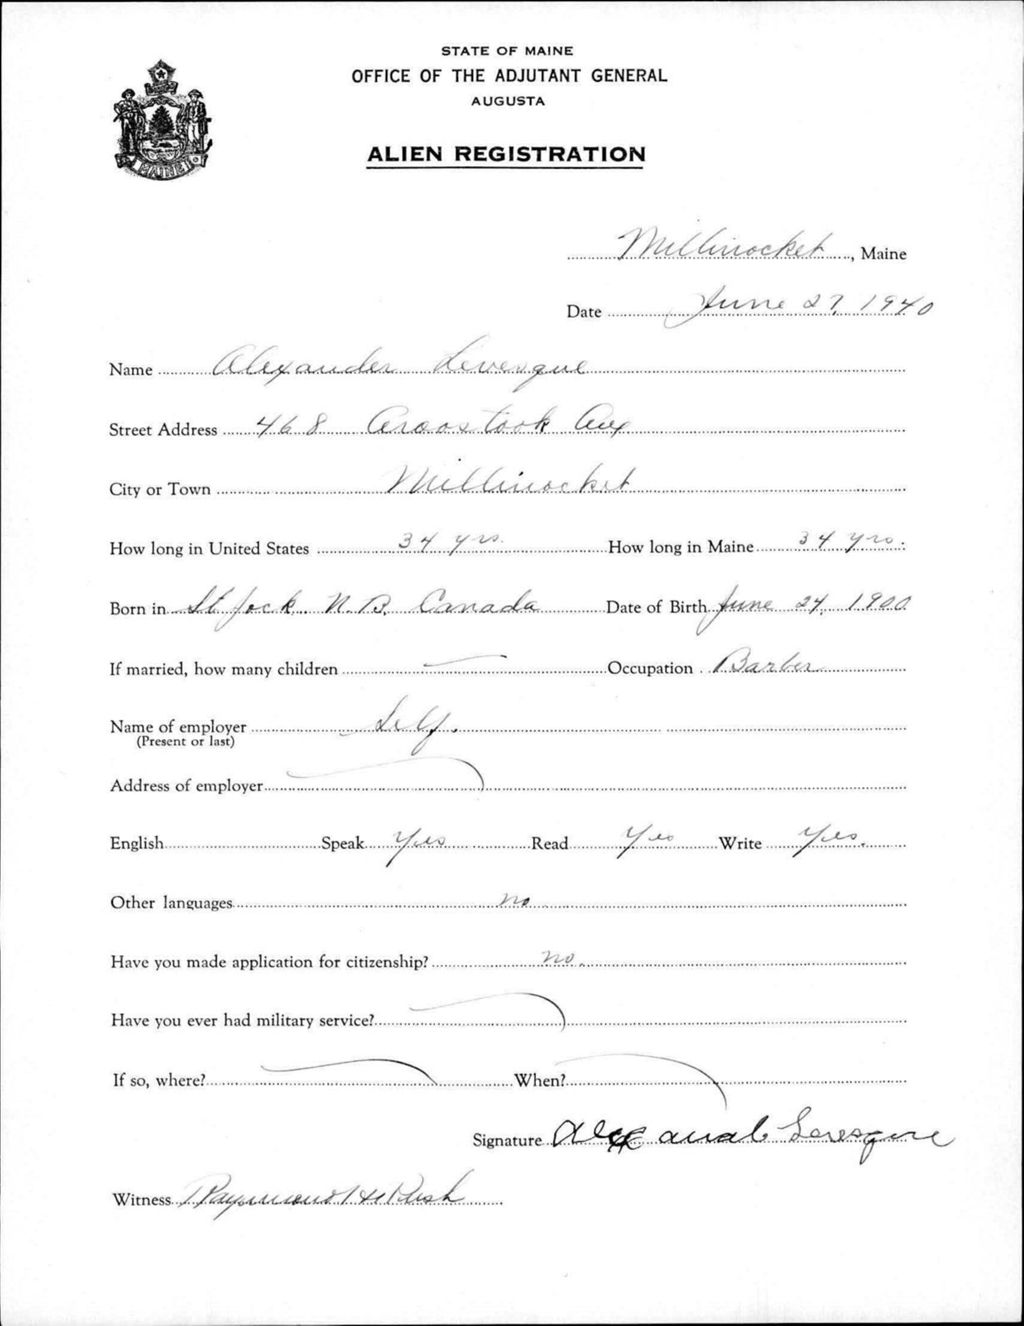 STATE OF MAINE
OFFICE OF THE ADJUTANT GENERAL
AUGUSTA
ALIEN REGISTRATION
MAINE
Millinocket, Maine
Date June 27, 1940
Name Alexander Levesque
Street Address 468 Aroostook Ave
City or Town Millinocket
How long in United States 34 yrs. How long in Maine 34 yrs.
Born in St Jock. N.B. Canada Date of Birth June 24, 1900
If married, how many children — Occupation Barber
Name of employer Self.
(Present or last)
Address of employer
English Speak Yes Read Yes Write Yes.
Other languages no
Have you made application for citizenship? no.
Have you ever had military service?
If so, where? When?
Signature Levesque
Witness Raymond H Rush